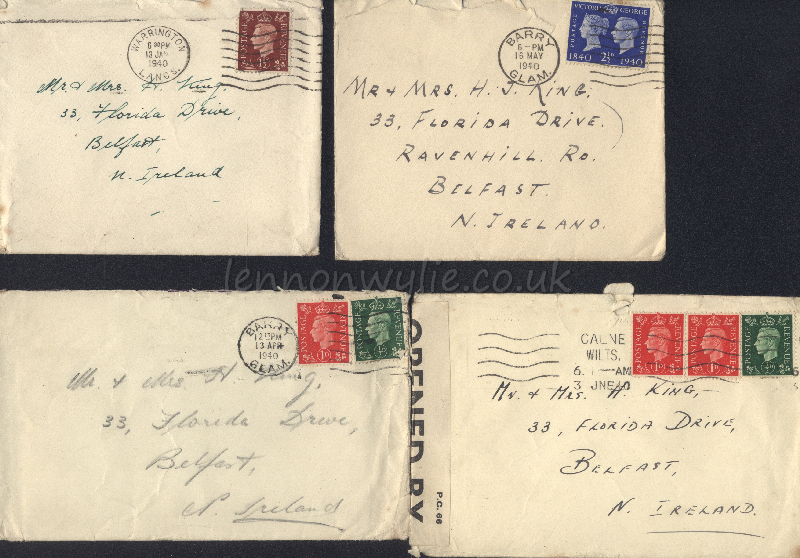 WARRINGTON
LANCS.
6 30PM
13 JAN
1940
Mr & Mrs. H. King,
33, Florida Drive,
Belfast,
N. Ireland
BARRY
GLAM.
6 - PM
16 MAY
1940
POSTAGE
REVENUE
1840 2½D 1940
MR & MRS. H. J. KING,
33, FLORIDA DRIVE.
RAVENHILL RD.
BELFAST.
N. IRELAND.
lennonwylie.co.uk
BARRY
GLAM.
12 15PM
13 APR
1940
POSTAGE REVENUE
POSTAGE REVENUE
Mr. & Mrs. H. King,
33, Florida Drive,
Belfast,
N. Ireland
OPENED BY
P.C. 66
CALNE
WILTS.
6. AM
3 JNE40
POSTAGE REVENUE
POSTAGE REVENUE
POSTAGE REVENUE
Mr. & Mrs. H. KING,
33, FLORIDA DRIVE,
BELFAST,
N. IRELAND.